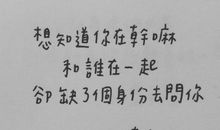 想知道你在幹嘛
和誰在一起
卻缺了個身份去問你